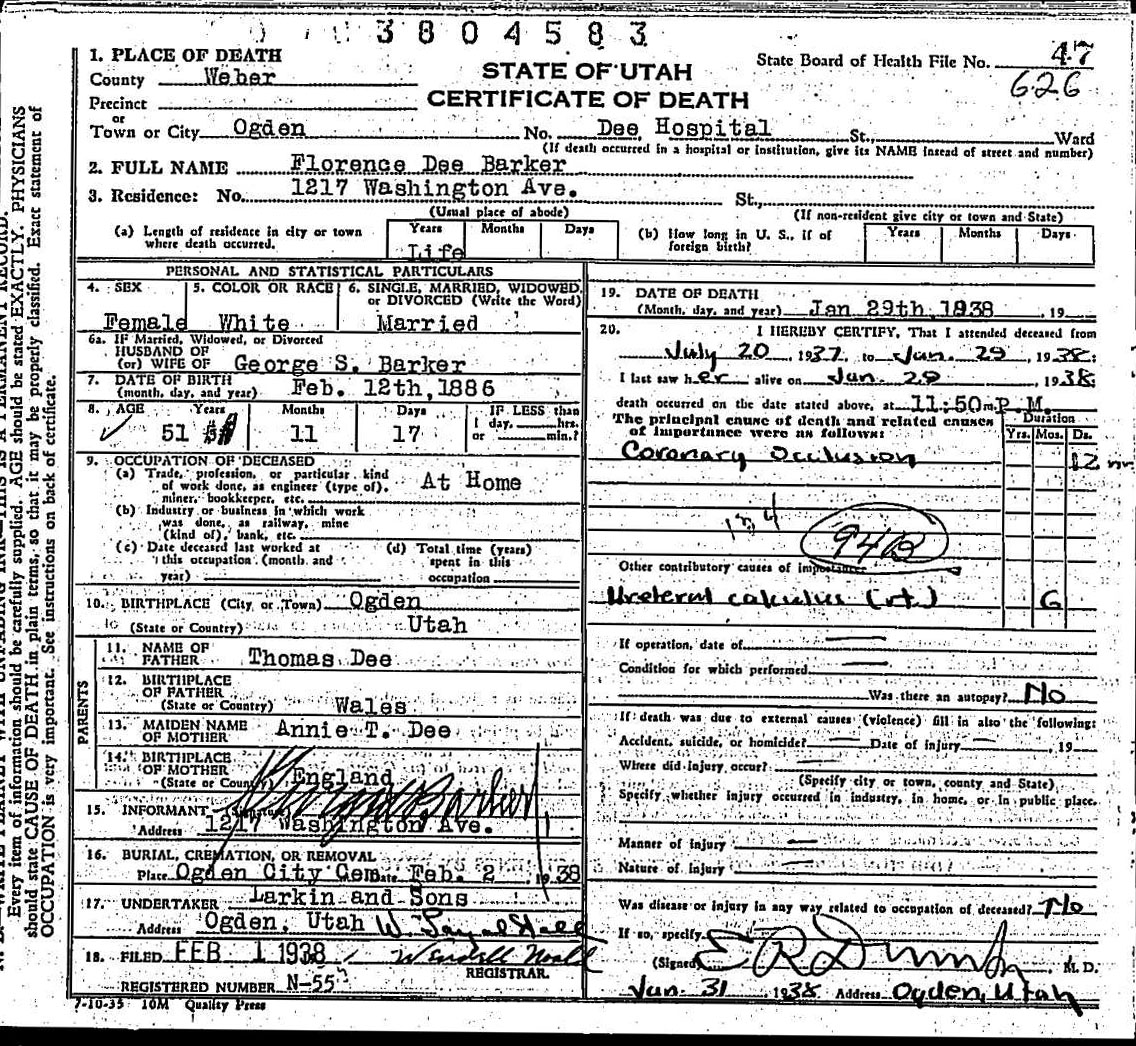 3804583
1. PLACE OF DEATH
County Weber
STATE OF UTAH
CERTIFICATE OF DEATH
State Board of Health File No. 47
626
Precinct
or
Town or City Ogden No. Dee Hospital St., Ward
(If death occurred in a hospital or institution, give its NAME instead of street and number)
2. FULL NAME Florence Dee Barker
3. Residence: No. 1217 Washington Ave. St.,
(Usual place of abode) (If non-resident give city or town and State)
(a) Length of residence in city or town where death occurred. Years Months Days
Life
(b) How long in U. S., if of foreign birth? Years Months Days
PERSONAL AND STATISTICAL PARTICULARS
4. SEX 5. COLOR OR RACE 6. SINGLE, MARRIED, WIDOWED, or DIVORCED (Write the Word)
Female White Married
6a. IF Married, Widowed, or Divorced
HUSBAND OF
(or) WIFE OF George S. Barker
7. DATE OF BIRTH
(month, day, and year) Feb. 12th, 1886
8. AGE Years Months Days IF LESS than
1 day, hrs.
or min.?
51 11 17
9. OCCUPATION OF DECEASED
(a) Trade, profession, or particular kind
of work done, as engineer (type of), At Home
miner, bookkeeper, etc.
(b) Industry or business in which work
was done, as railway, mine
(kind of), bank, etc.
(c) Date deceased last worked at
this occupation (month and
year)
(d) Total time (years)
spent in this
occupation
10. BIRTHPLACE (City or Town) Ogden
(State or Country) Utah
PARENTS
11. NAME OF
FATHER Thomas Dee
12. BIRTHPLACE
OF FATHER
(State or Country) Wales
13. MAIDEN NAME
OF MOTHER Annie T. Dee
14. BIRTHPLACE
OF MOTHER
(State or Country) England
15. INFORMANT Barker
Address 1217 Washington Ave.
16. BURIAL, CREMATION, OR REMOVAL
Place Ogden City Cem Date Feb. 2, 1938
17. UNDERTAKER Larkin and Sons
Address Ogden, Utah
18. FILED FEB 1 1938
REGISTRAR
REGISTERED NUMBER N-55
7-10-35 10M Quality Press
19. DATE OF DEATH
(Month, day, and year) Jan 29th, 1938, 19
20. I HEREBY CERTIFY, That I attended deceased from
July 20, 1937, to Jan. 29, 1938;
I last saw her alive on Jan. 29 1938;
death occurred on the date stated above, at 11:50 m. P.M.
The principal cause of death and related causes
of importance were as follows:
Duration
Yrs. Mos. Ds.
Coronary Occlusion 12
94B
Other contributory causes of importance
Ureteral calculus (rt.) 6
If operation, date of
Condition for which performed
Was there an autopsy? No
If death was due to external causes (violence) fill in also the following:
Accident, suicide, or homicide? Date of injury, 19
Where did injury occur?
(Specify city or town, county and State)
Specify whether injury occurred in industry, in home, or in public place.
Manner of injury
Nature of injury
Was disease or injury in any way related to occupation of deceased? No
If so, specify
(Signed) E R Dumke, M. D.
Jan. 31 1938 Address Ogden, Utah
Every item of information should be carefully supplied. AGE should be stated EXACTLY. PHYSICIANS
should state CAUSE OF DEATH in plain terms, so that it may be properly classified. Exact statement of
OCCUPATION is very important. See instructions on back of certificate.